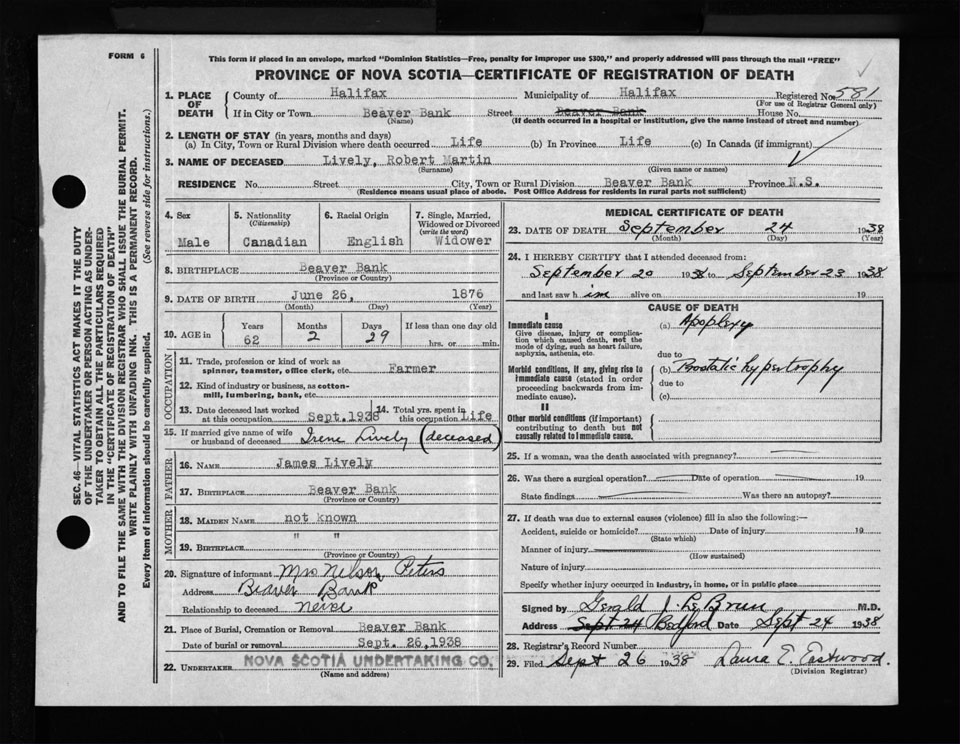 FORM 6
This form if placed in an envelope, marked "Dominion Statistics—Free, penalty for improper use $300," and properly addressed will pass through the mail "FREE"
PROVINCE OF NOVA SCOTIA—CERTIFICATE OF REGISTRATION OF DEATH
SEC. 46—VITAL STATISTICS ACT MAKES IT THE DUTY
OF THE UNDERTAKER OR PERSON ACTING AS UNDER-
TAKER TO OBTAIN ALL THE PARTICULARS REQUIRED
IN THE "CERTIFICATE OF REGISTRATION OF DEATH"
AND TO FILE THE SAME WITH THE DIVISION REGISTRAR WHO SHALL ISSUE THE BURIAL PERMIT.
WRITE PLAINLY WITH UNFADING INK. THIS IS A PERMANENT RECORD.
Every item of information should be carefully supplied. (See reverse side for instructions.)
1. PLACE OF DEATH County of Halifax Municipality of Halifax Registered No. 581
(For use of Registrar General only)
If in City or Town Beaver Bank Street Beaver Bank House No.
(Name) (If death occurred in a hospital or institution, give the name instead of street and number)
2. LENGTH OF STAY (in years, months and days)
(a) In City, Town or Rural Division where death occurred Life (b) In Province Life (c) In Canada (if immigrant)
3. NAME OF DECEASED Lively, Robert Martin
(Surname) (Given name or names)
RESIDENCE No. Street City, Town or Rural Division Beaver Bank Province N.S.
(Residence means usual place of abode. Post Office Address for residents in rural parts not sufficient)
4. Sex Male
5. Nationality (Citizenship) Canadian
6. Racial Origin English
7. Single, Married, Widowed or Divorced (write the word) Widower
8. BIRTHPLACE Beaver Bank
(Province or Country)
9. DATE OF BIRTH June 26, 1876
(Month) (Day) (Year)
10. AGE in Years 62 Months 2 Days 29 If less than one day old hrs. or min.
OCCUPATION
11. Trade, profession or kind of work as
spinner, teamster, office clerk, etc. Farmer
12. Kind of industry or business, as cotton-
mill, lumbering, bank, etc.
13. Date deceased last worked at this occupation Sept. 1938
14. Total yrs. spent in this occupation Life
15. If married give name of wife or husband of deceased Irene Lively (deceased)
FATHER
16. NAME James Lively
17. BIRTHPLACE Beaver Bank
(Province or Country)
MOTHER
18. MAIDEN NAME not known
19. BIRTHPLACE " "
(Province or Country)
20. Signature of informant Mrs Nelson Peters
Address Beaver Bank
Relationship to deceased
21. Place of Burial, Cremation or Removal Beaver Bank
Date of burial or removal Sept. 26, 1938
22. UNDERTAKER NOVA SCOTIA UNDERTAKING CO.
(Name and address)
MEDICAL CERTIFICATE OF DEATH
23. DATE OF DEATH September 24 1938
(Month) (Day) (Year)
24. I HEREBY CERTIFY that I attended deceased from:
September 20 1938 to September 23 1938
and last saw him alive on 19
CAUSE OF DEATH
I
Immediate cause (a) Apoplexy
Give disease, injury or complica-
tion which caused death, not the
mode of dying, such as heart failure,
asphyxia, asthenia, etc.
due to
Morbid conditions, if any, giving rise to (b) Prostatic hypertrophy
immediate cause (stated in order due to
proceeding backwards from im-
mediate cause). (c)
II
Other morbid conditions (if important)
contributing to death but not
causally related to immediate cause.
25. If a woman, was the death associated with pregnancy?
26. Was there a surgical operation? Date of operation 19
State findings Was there an autopsy?
27. If death was due to external causes (violence) fill in also the following:—
Accident, suicide or homicide? Date of injury 19
(State which)
Manner of injury
(How sustained)
Nature of injury
Specify whether injury occurred in industry, in home, or in public place
Signed by Gerald J. Le Brun M.D.
Address Sept 24 Bedford Date Sept 24 1938
28. Registrar's Record Number
29. Filed Sept 26 1938 Laura E. Eastwood.
(Division Registrar)